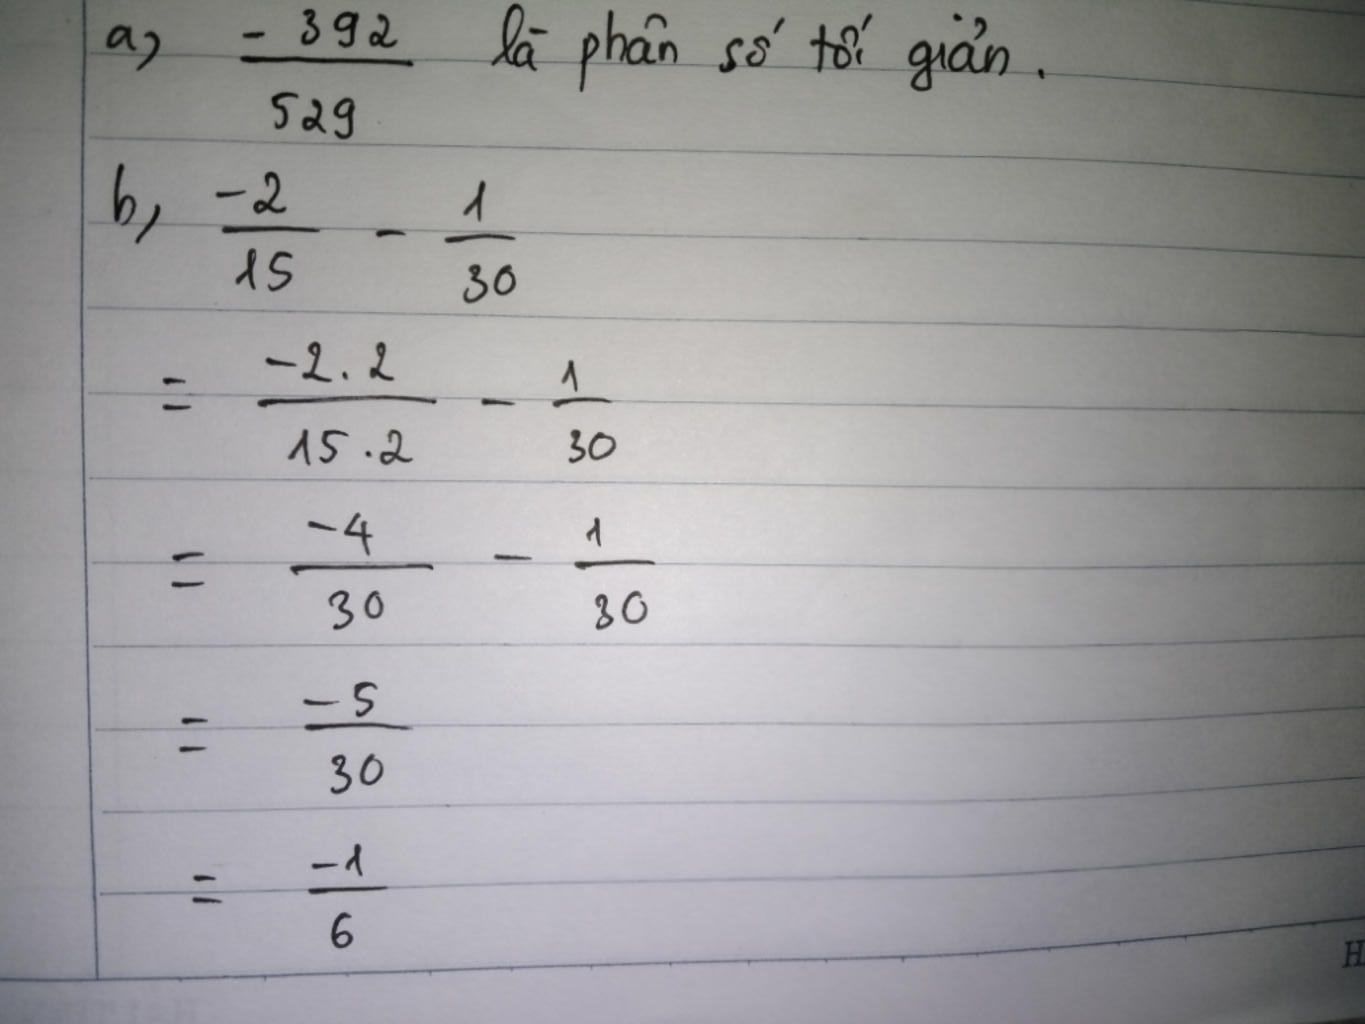 a, -392/529 là phân số tối giản.
b, -2/15 - 1/30
= -2.2/15.2 - 1/30
= -4/30 - 1/30
= -5/30
= -1/6
H